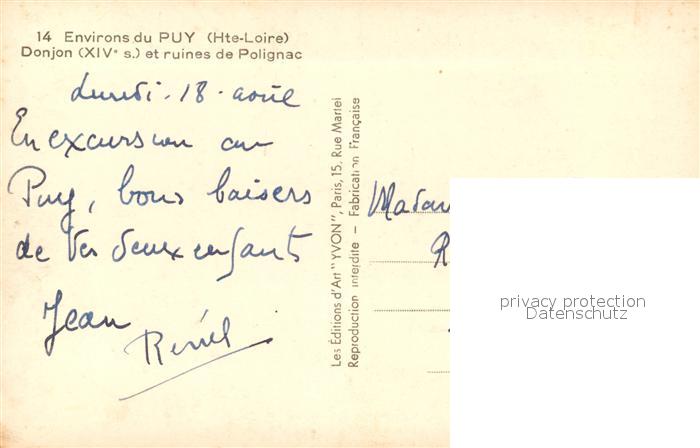 14 Environs du PUY (Hte-Loire)
Donjon (XIVe s.) et ruines de Polignac
Lundi - 18 - août
En excursion au
Puy, bons baisers
de Vos deux enfants
Jean
Les Éditions d'Art "YVON", Paris, 15, Rue Martel
Reproduction Interdite — Fabrication Française
Madam
R
privacy protection
Datenschutz